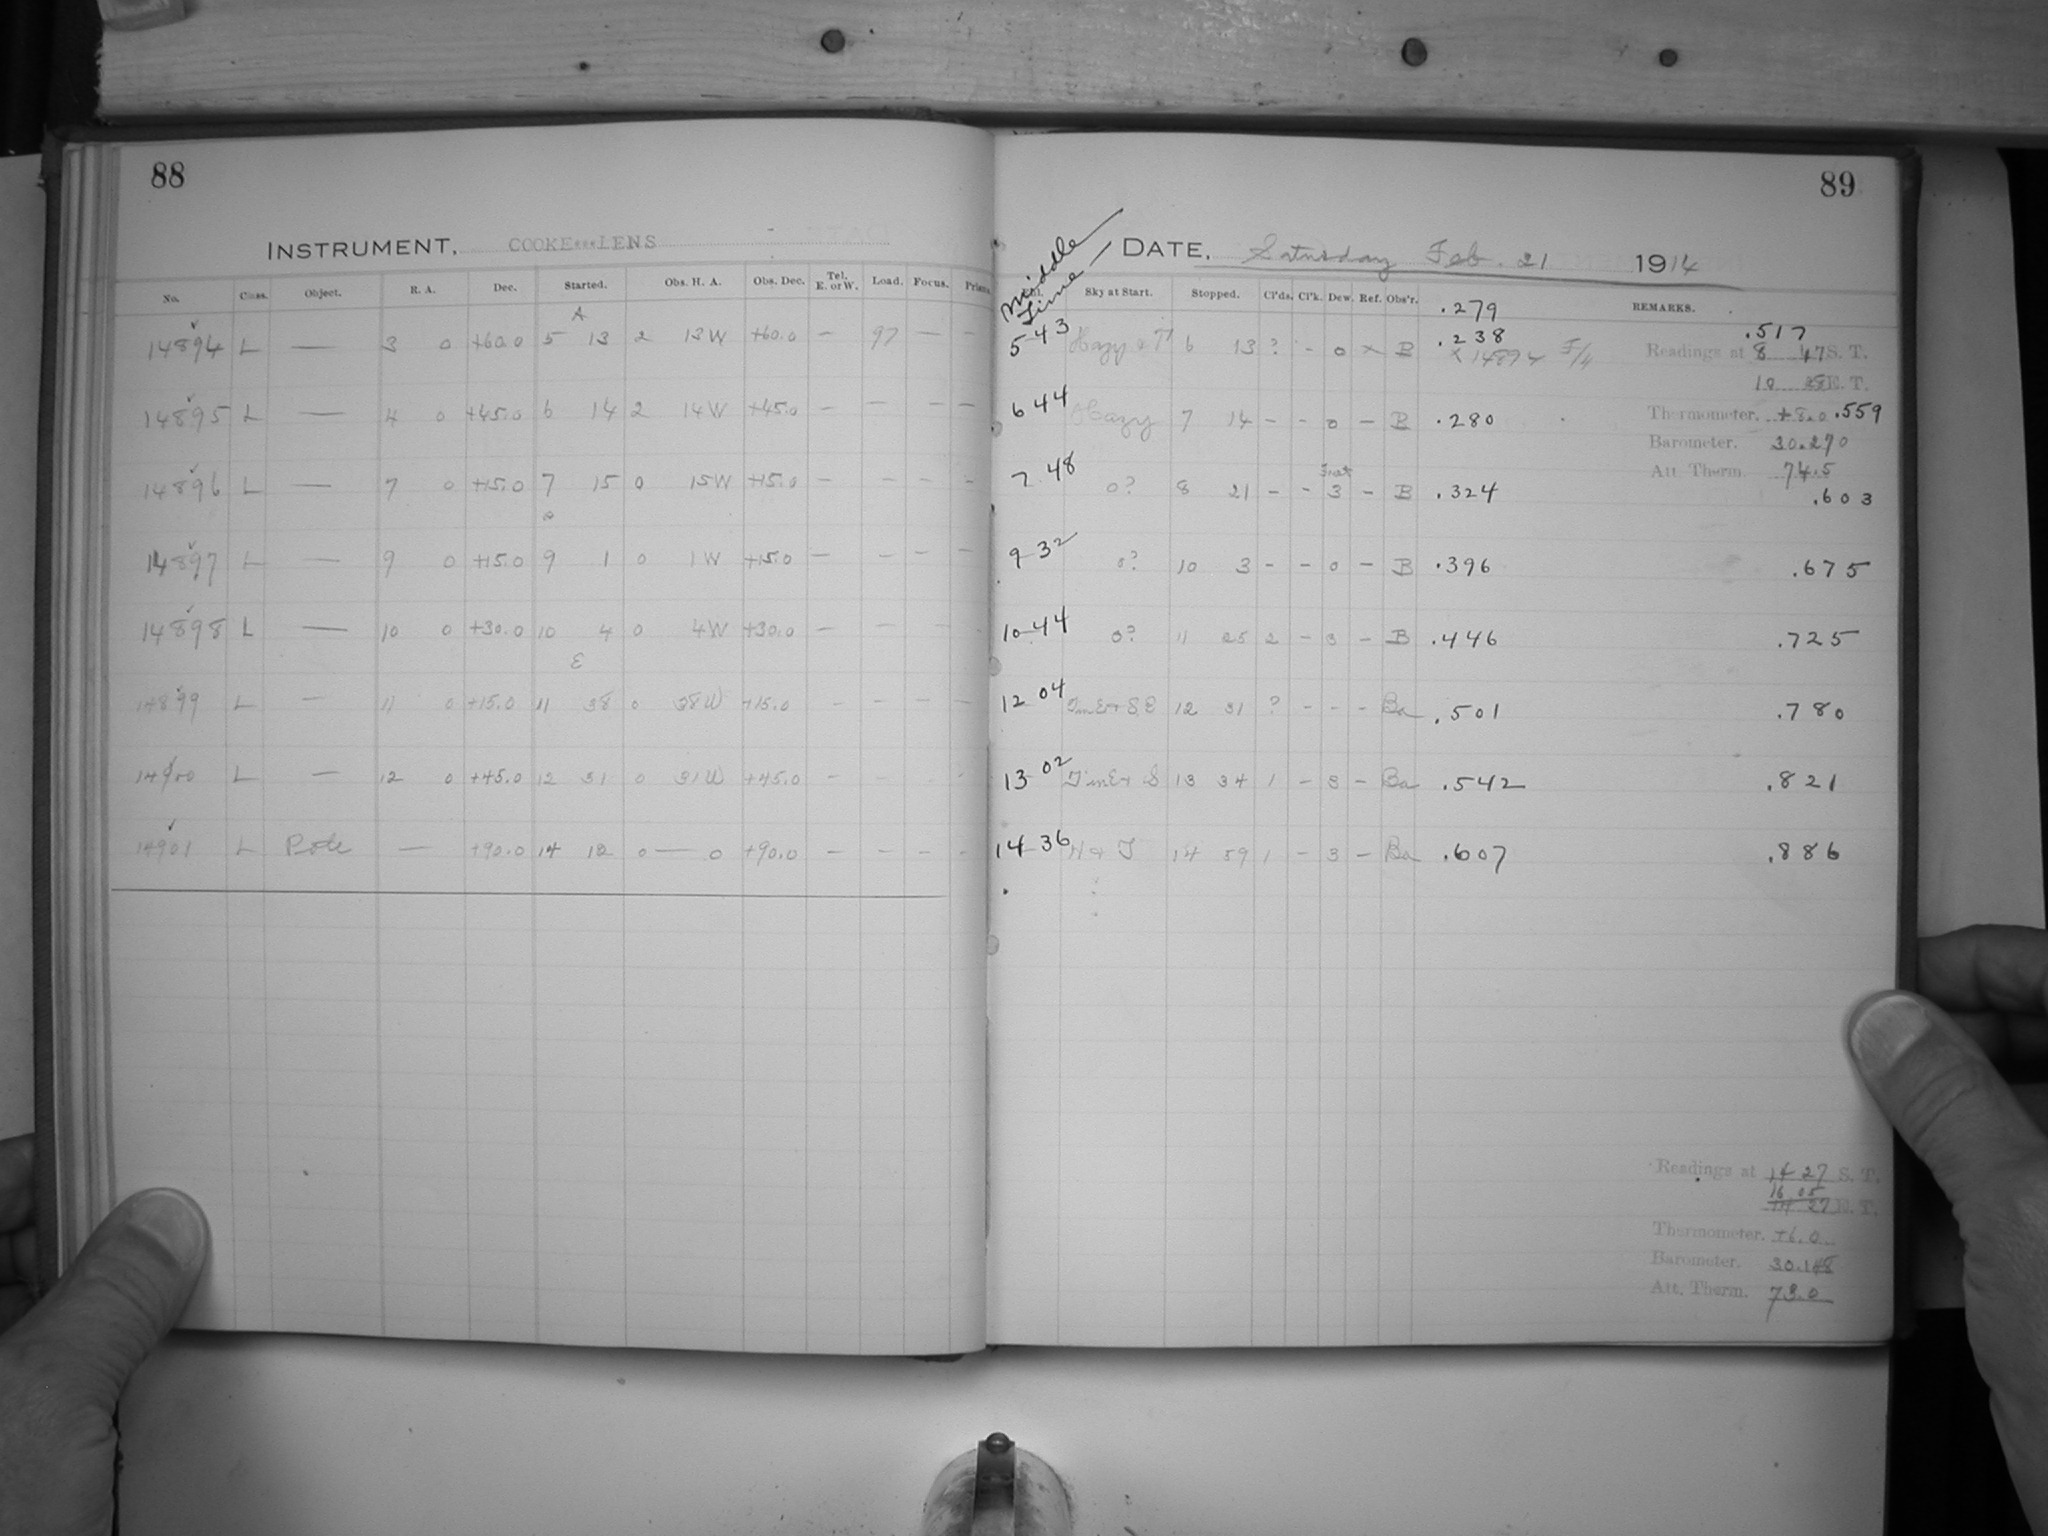 88
INSTRUMENT, COOKE LENS
No. Class. Object. R. A. Dec. Started. Obs. H. A. Obs. Dec. Tel. E. or W. Load. Focus.
A
14894 L — 3 0 +60.0 5 13 2 13W +60.0 — 97 — —
14895 L — 4 0 +45.0 6 14 2 14W +45.0 — — — —
14896 L — 7 0 +15.0 7 15 0 15W +15.0 — — — -
14897 L — 9 0 +15.0 9 1 0 1W +15.0 — — — —
14898 L — 10 0 +30.0 10 4 0 4W +30.0 — — — —
E
14899 L — 11 0 +15.0 11 38 0 38W +15.0 - — — -
14900 L — 12 0 +45.0 12 31 0 31W +45.0 - - -
14901 L Pole — +90.0 14 12 0 — 0 +90.0 — — — -
89
Middle Time
DATE, Saturday Feb. 21 1914
Sky at Start. Stopped. Cl'ds. Cl'k. Dew. Ref. Obs'r. REMARKS.
.279
5 43 Hazy 6 13 ? - 0 x B .238 .517
x 14894
Readings at 8 47 S. T.
10 E. T.
6 44 Hazy 7 14 - - 0 — B .280
Thermometer. +8.0 .559
Barometer. 30.270
Att. Therm. 74.5
7 48 0? 8 21 - - 3 - B .324 .603
9 32 0? 10 3 - - 0 - B .396 .675
10 44 0? 11 25 2 - 3 - B .446 .725
12 04 12 31 ? - - - Ba .501 .780
13 02 13 34 1 - 3 - Ba .542 .821
14 36 14 59 1 - 3 - Ba .607 .886
Readings at 14 27 S. T.
16 05
14 27 E. T.
Thermometer. +6.0
Barometer. 30.148
Att. Therm. 73.0